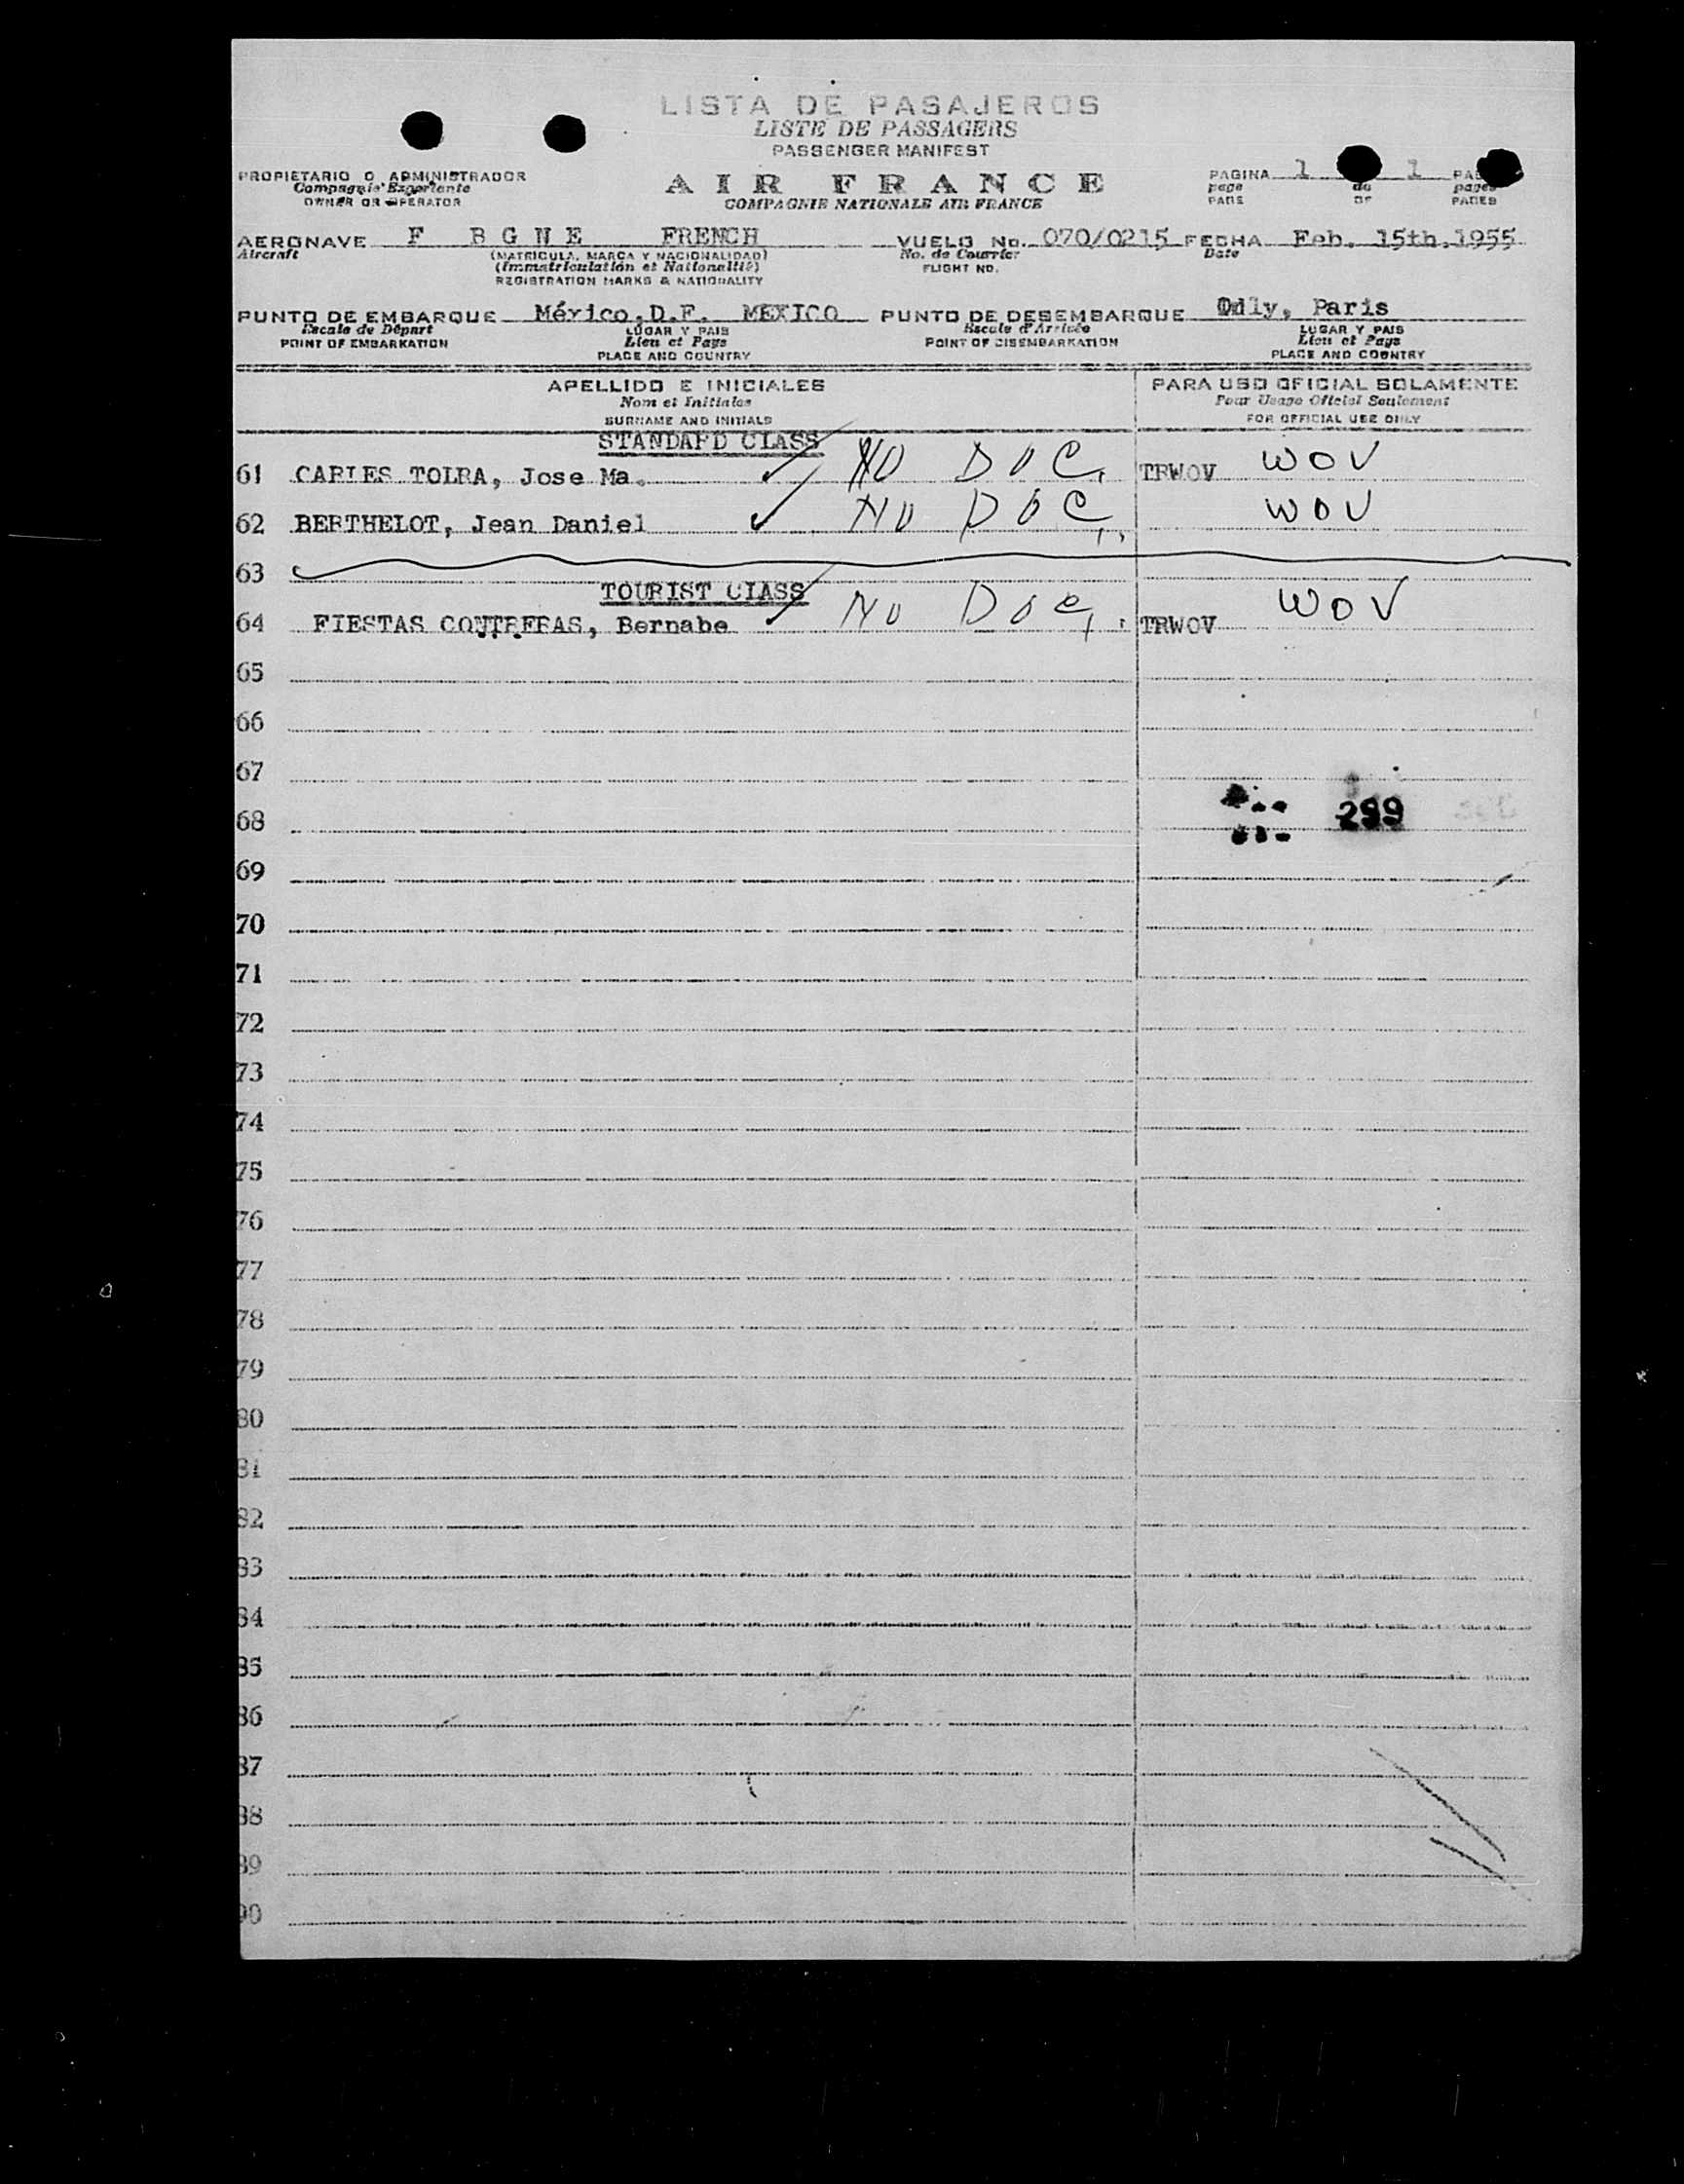 LISTA DE PASAJEROS
LISTE DE PASSAGERS
PASSENGER MANIFEST
PROPIETARIO O ADMINISTRADOR
Compagnie Exportante
OWNER OR OPERATOR
AIR FRANCE
COMPAGNIE NATIONALE AIR FRANCE
PAGINA 1 1
page de pages
PAGE OF PAGES
AERONAVE F BGNE FRENCH VUELO No. 070/0215 FECHA Feb. 15th.1955
Aircraft (MATRICULA, MARCA Y NACIONALIDAD) No. de Courrier Date
(Immatriculation et Nationalité) FLIGHT NO.
REGISTRATION MARKS & NATIONALITY
PUNTO DE EMBARQUE México,D.F. MEXICO PUNTO DE DESEMBARQUE Paris
Escale de Départ LUGAR Y PAIS Escale d'Arrivée LUGAR Y PAIS
POINT OF EMBARKATION Lieu et Pays POINT OF DISEMBARKATION Lieu et Pays
PLACE AND COUNTRY PLACE AND COUNTRY
APELLIDO E INICIALES PARA USO OFICIAL SOLAMENTE
Nom et Initiales Pour Usage Officiel Seulement
SURNAME AND INITIALS FOR OFFICIAL USE ONLY
STANDARD CLASS
61 CARLES TOLRA, Jose Ma. NO DOC. TRWOV WOV
62 BERTHELOT, Jean Daniel NO DOC. WOV
63
TOURIST CLASS
64 FIESTAS CONTRERAS, Bernabe NO DOC. TRWOV WOV
65
66
67
68 299
69
70
71
72
73
74
75
76
77
78
79
80
81
82
83
84
85
86
87
88
89
90